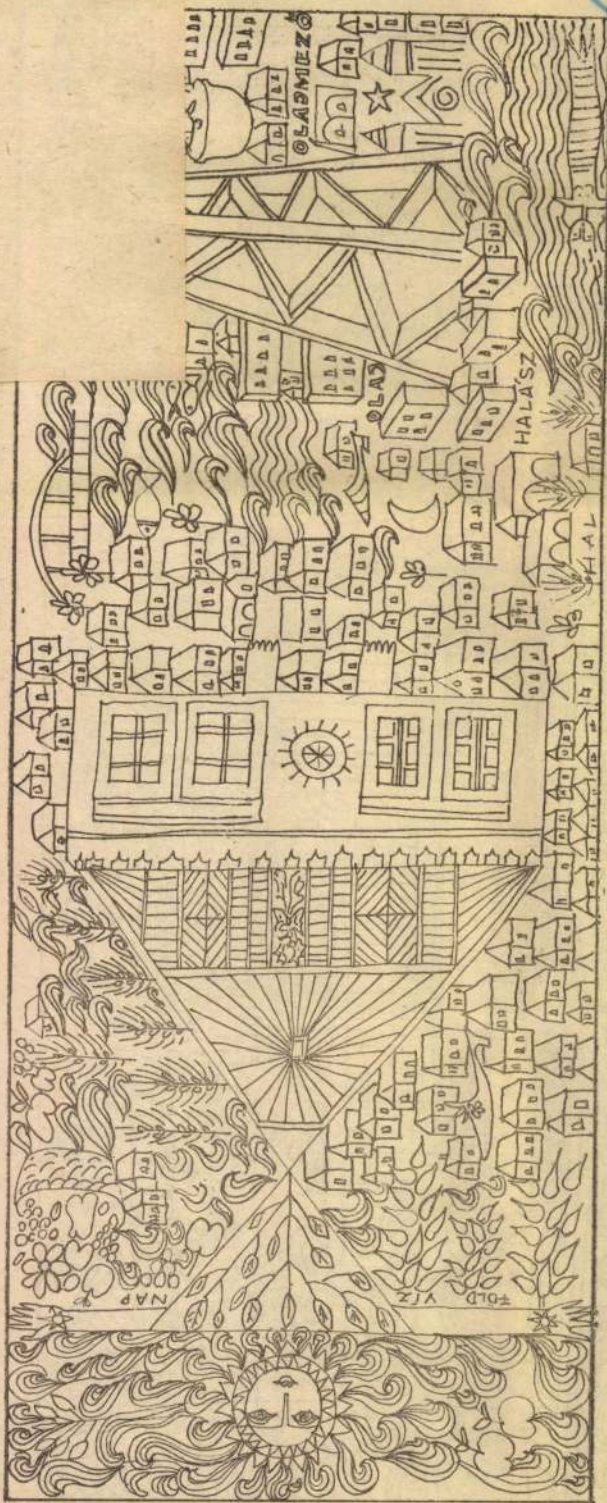 OLAJMEZŐ
OLAJ
HALÁSZ
HAL
NAP
VÍZ
FÖLD